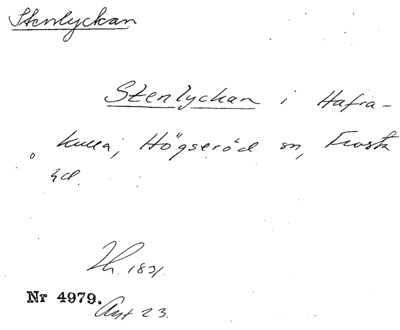 Stenlyckan
Stenlyckan i Hafra-
kulla, Högseröd sn, Frosta
hd.
Th. 1831.
Nr 4979.
Ant 23.